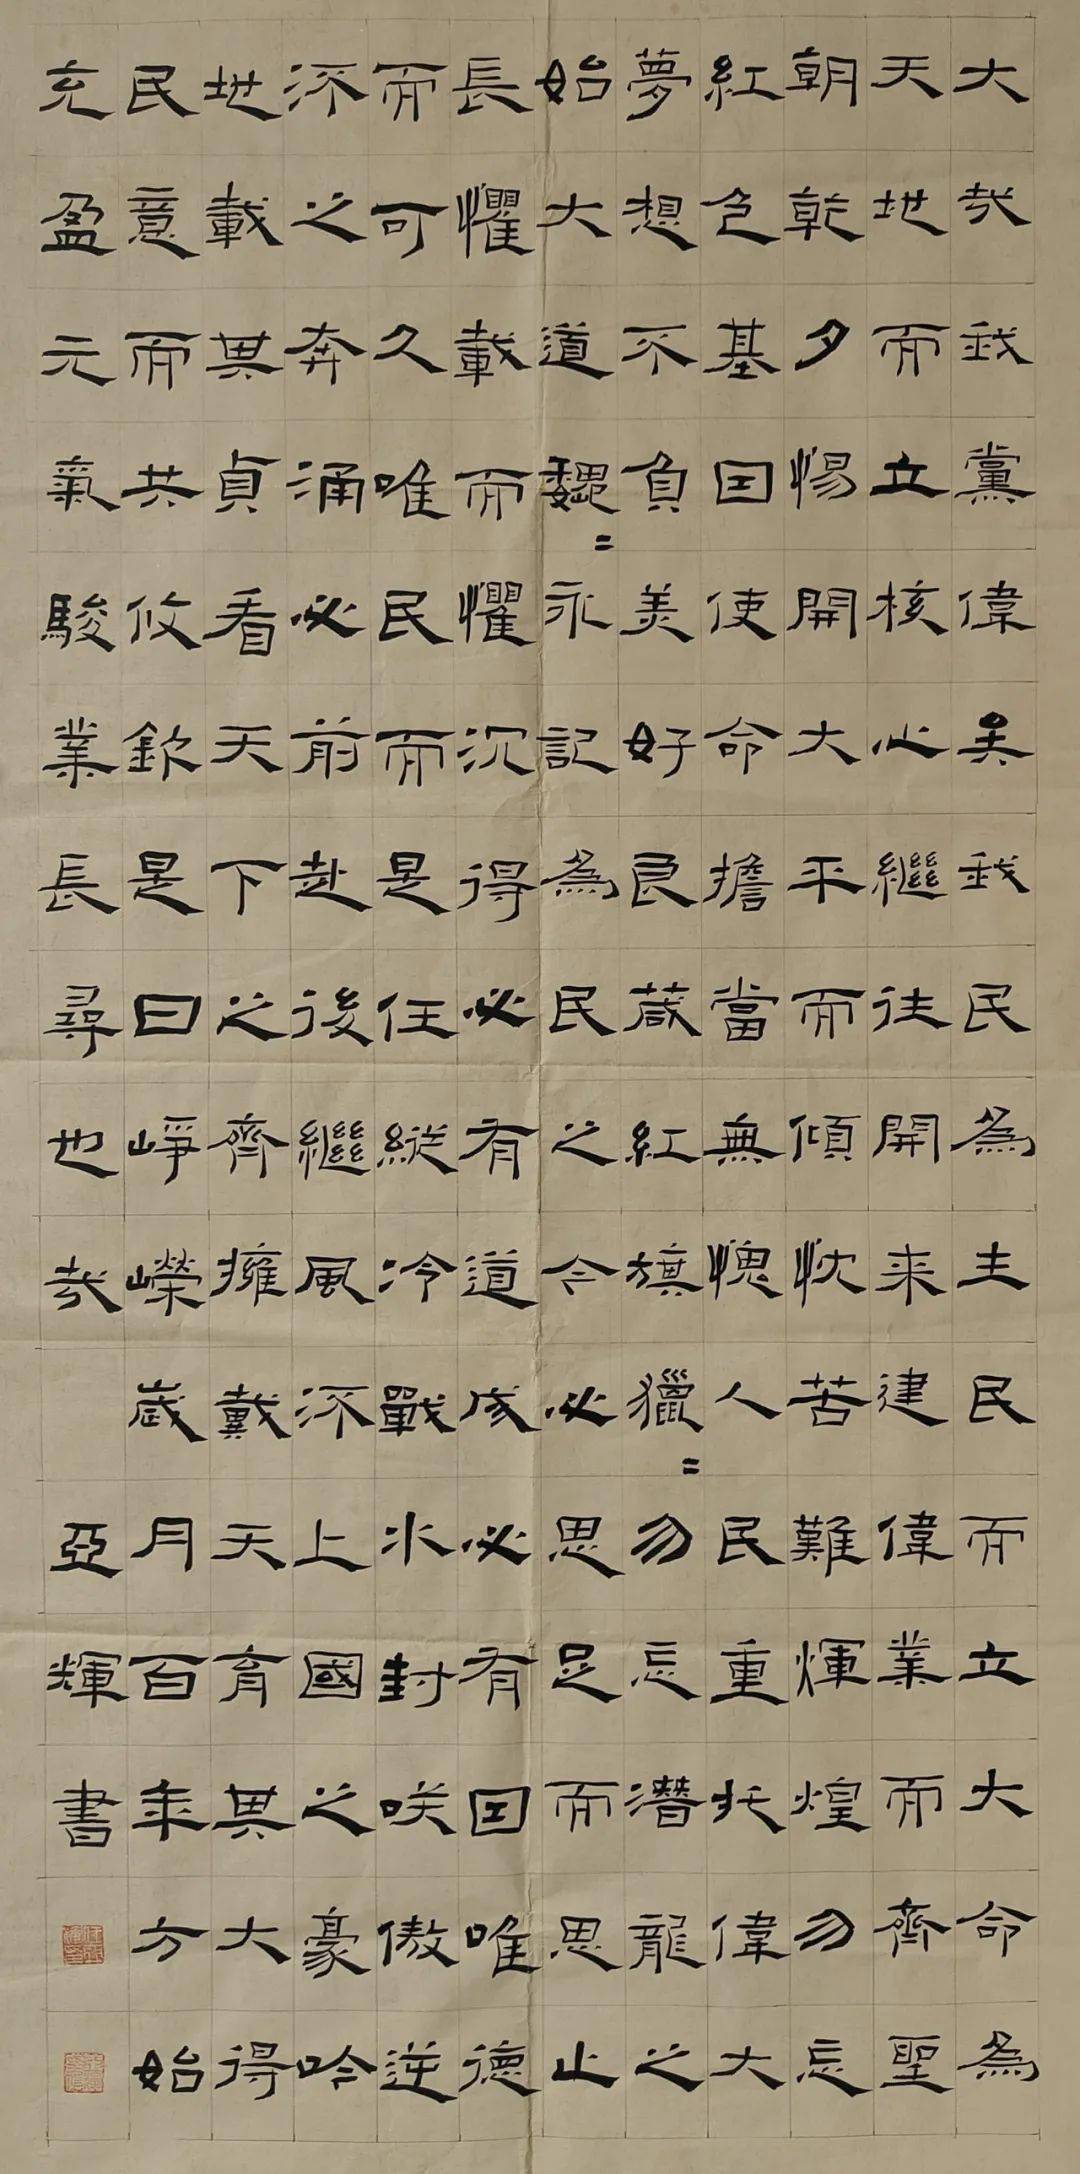 大哉我黨偉矣我民為主民而立大命為
天地而立核心繼往開来建偉業而齊聖
朝乾夕惕開大平而傾忱苦難煇煌勿忘
紅色基因使命擔當無愧人民重托偉大
夢想不負美好良葴紅旗獵=勿忘潛龍之
始大道魏=永記為民之令必思足而思止
長懼載而懼沉得必有道成必有因唯德
而可久唯民而是任縱冷戰氷封咲傲逆
流之奔涌必前赴後繼風流上國之豪吟
地載其貞看天下之齊擁戴天育其大得
民意而共攸欽是曰崢嶸歲月百年方始
充盈元氣駿業長尋也哉 亞輝書